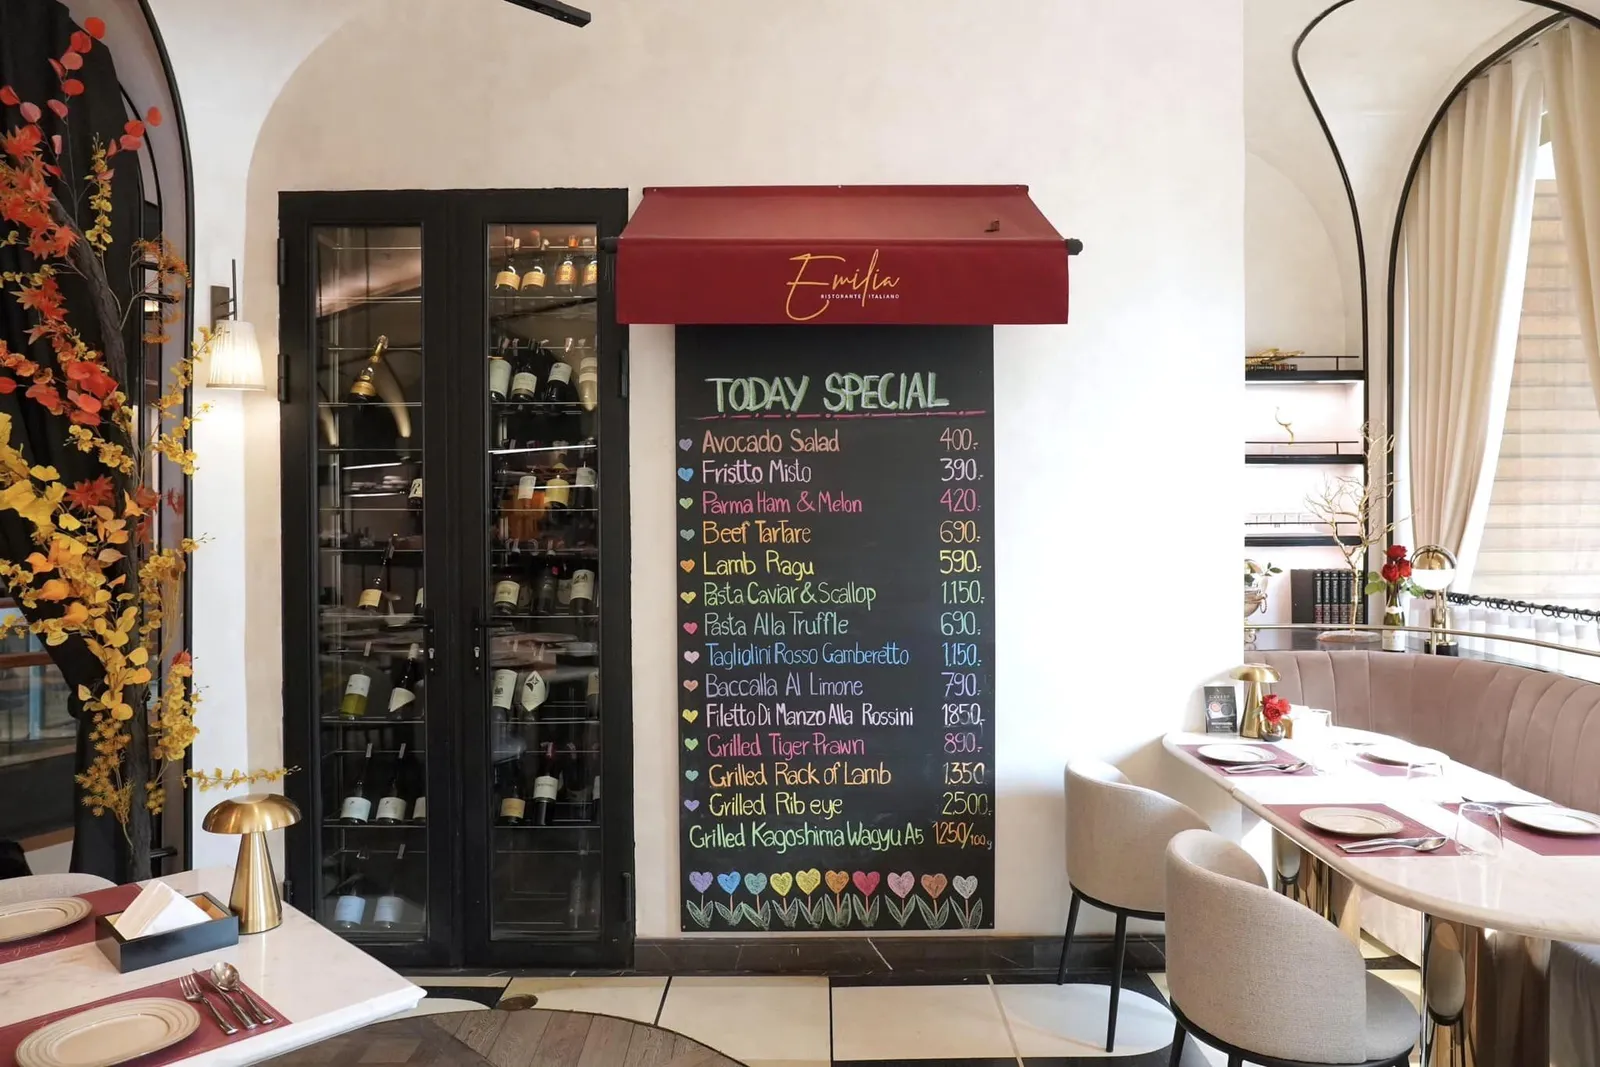 Emilia
RISTORANTE ITALIANO
TODAY SPECIAL
Avocado Salad 400.-
Fristto Misto 390.-
Parma Ham & Melon 420.-
Beef Tartare 690.-
Lamb Ragu 590.-
Pasta Caviar & Scallop 1,150.-
Pasta Alla Truffle 690.-
Tagliolini Rosso Gamberetto 1,150.-
Baccalla Al Limone 790.-
Filetto Di Manzo Alla Rossini 1,850.-
Grilled Tiger Prawn 890.-
Grilled Rack of Lamb 1,350
Grilled Rib eye 2,500.
Grilled Kagoshima Wagyu A5 1250/100g